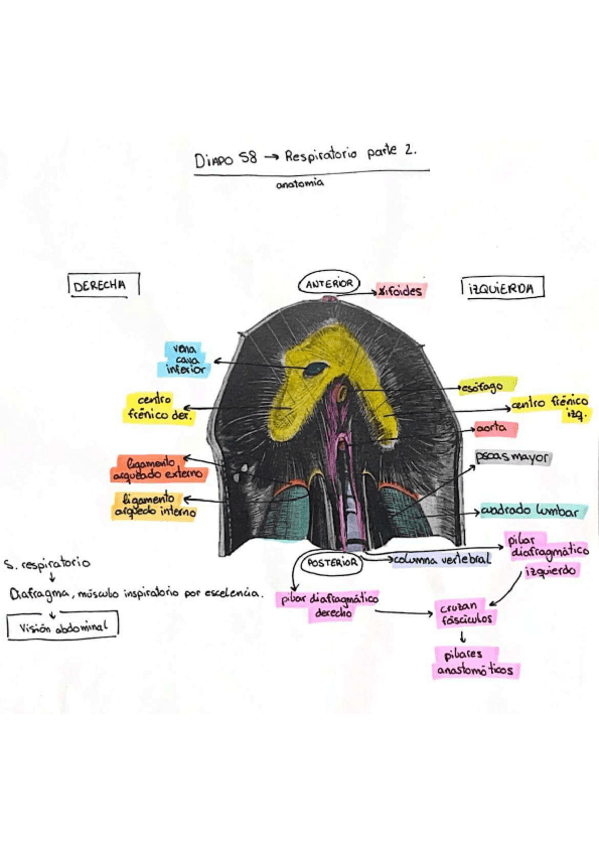 DIAPO 58 → Respiratorio parte 2.
anatomia
DERECHA
ANTERIOR
xifoides
IZQUIERDA
vena
cava
inferior
esófago
centro
frénico der.
centro frénico
izq.
aorta
ligamento
arqueado externo
psoas mayor
ligamento
arqueado interno
cuadrado lumbar
S. respiratorio
↓
Diafragma, músculo inspiratorio por escelencia.
↓
Visión abdominal
POSTERIOR
columna vertebral
pilar
diafragmático
izquierdo
pilar diafragmático
derecho
cruzan
fáscículos
↓
pilares
anastomóticos